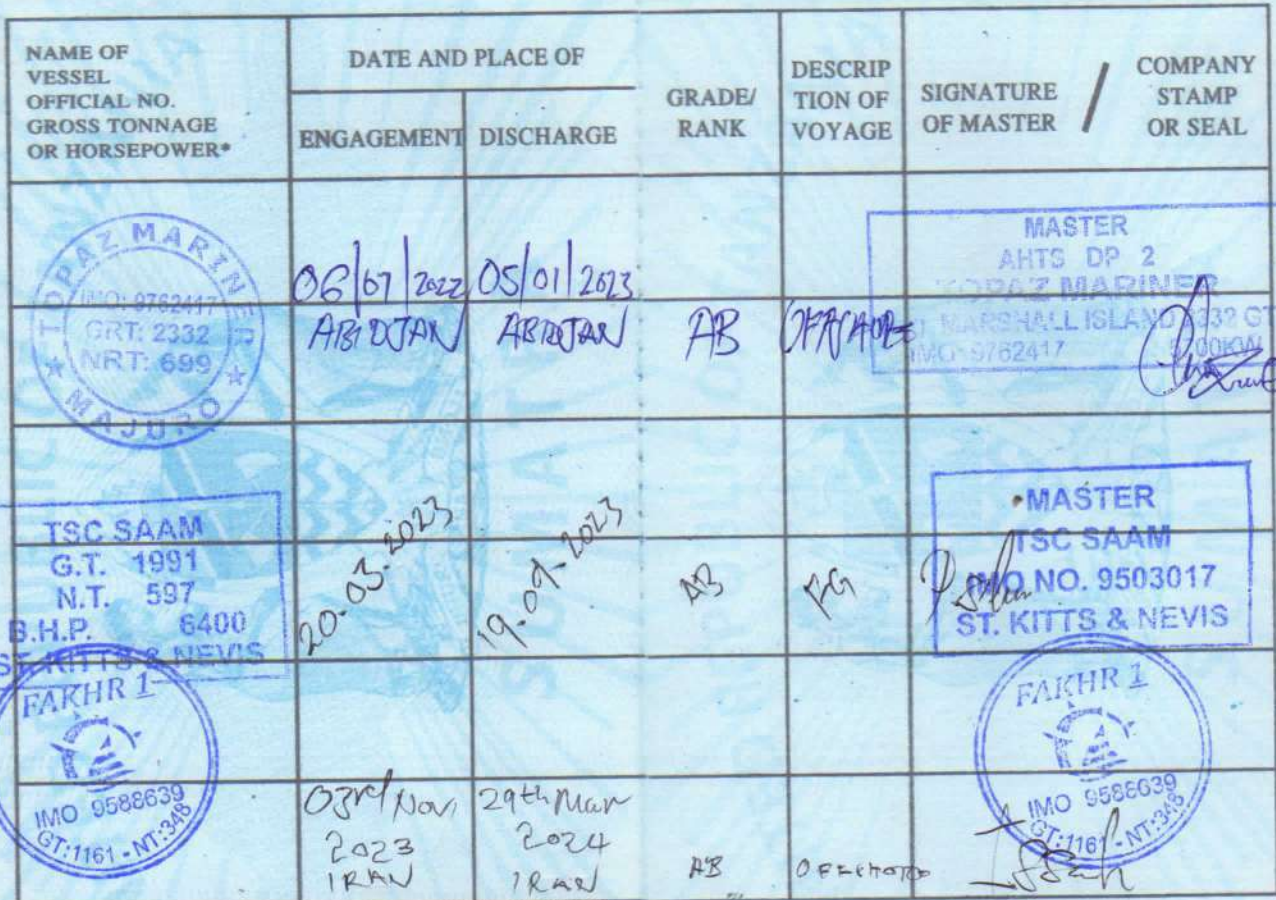 NAME OF
VESSEL
OFFICIAL NO.
GROSS TONNAGE
OR HORSEPOWER*
DATE AND PLACE OF
ENGAGEMENT
DISCHARGE
GRADE/
RANK
DESCRIP
TION OF
VOYAGE
SIGNATURE
OF MASTER
/
COMPANY
STAMP
OR SEAL
TOPAZ MARINER
IMO: 9762417
GRT: 2332
NRT: 699
★ MAJURO ★
06/07/2022
ABIDJAN
05/01/2023
ABIDJAN
AB
OFFSHORE
MASTER
AHTS DP 2
TOPAZ MARINER
MARSHALL ISLAND 2332 GT
IMO 9762417 5700KW
TSC SAAM
G.T. 1991
N.T. 597
B.H.P. 6400
ST. KITTS & NEVIS
20.03.2023
19.09.2023
AB
FG
MASTER
TSC SAAM
IMO NO. 9503017
ST. KITTS & NEVIS
FAKHR 1
IMO 9588639
GT:1161 - NT:348
03rd Nov
2023
IRAN
29th Mar
2024
IRAN
AB
OFFSHORE
FAKHR 1
IMO 9588639
GT:1161 - NT:348